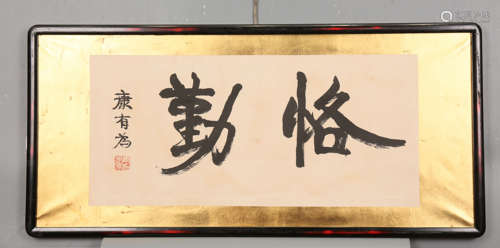 恪勤
康有為